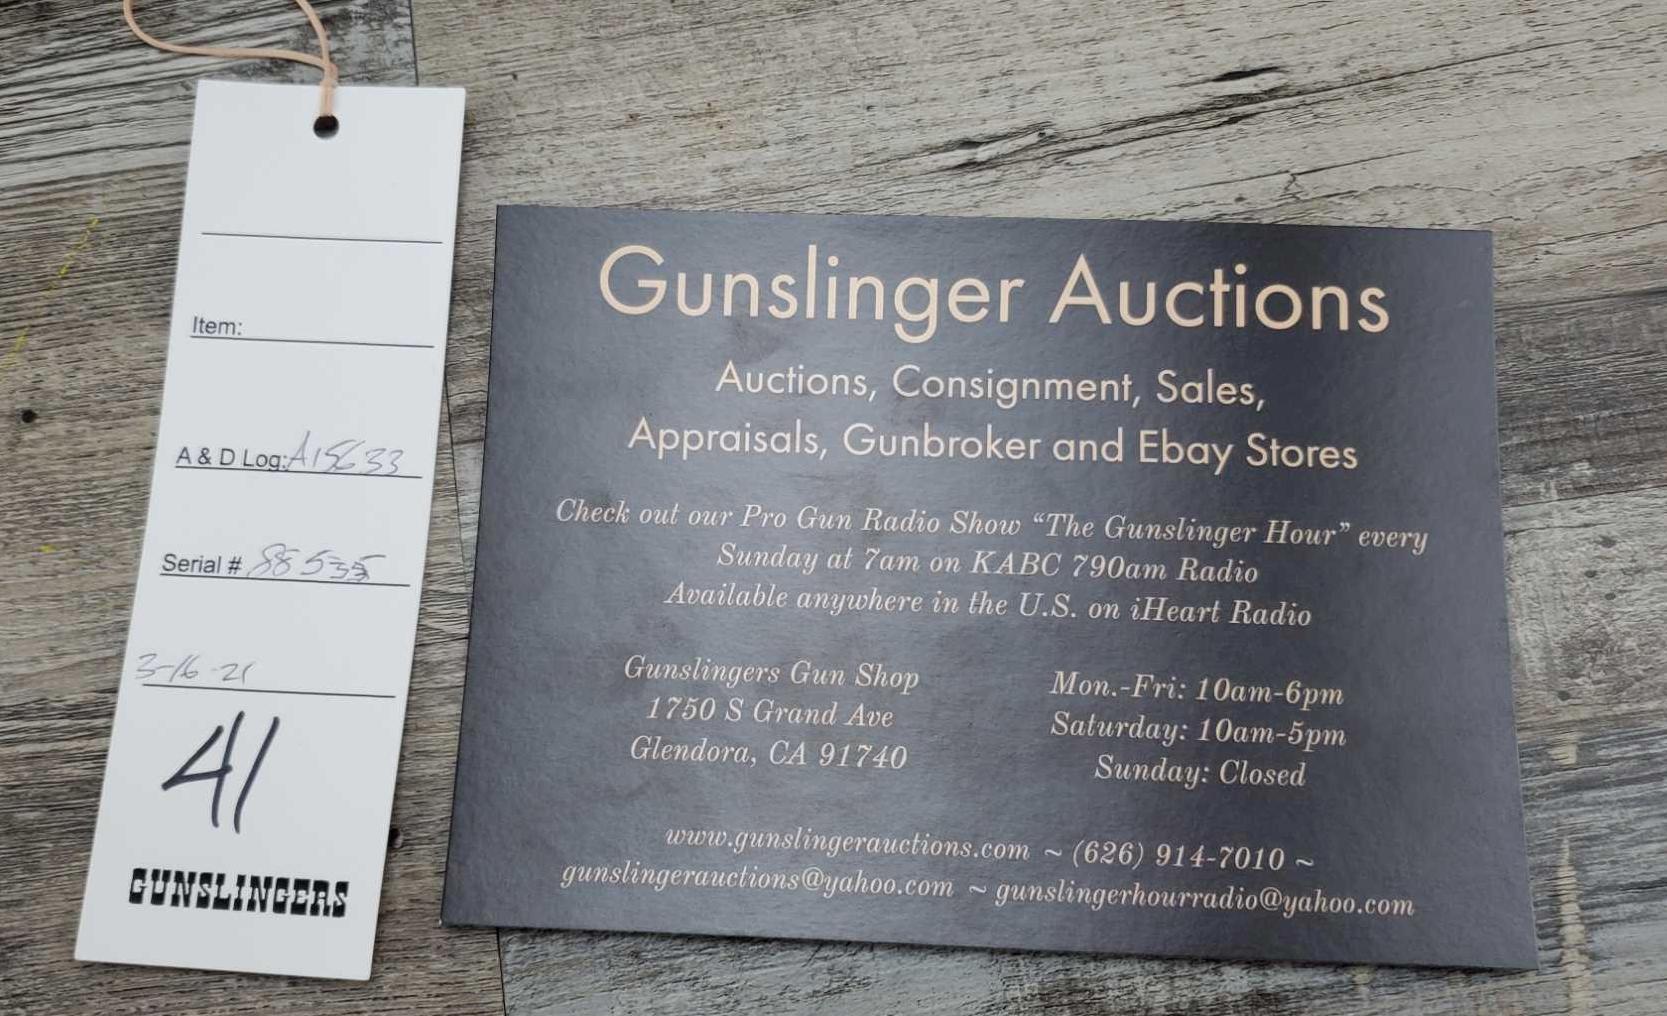 Item:
A & D Log: A15633
Serial # 88535
3-16-21
41
GUNSLINGERS
Gunslinger Auctions
Auctions, Consignment, Sales,
Appraisals, Gunbroker and Ebay Stores
Check out our Pro Gun Radio Show “The Gunslinger Hour” every
Sunday at 7am on KABC 790am Radio
Available anywhere in the U.S. on iHeart Radio
Gunslingers Gun Shop
1750 S Grand Ave
Glendora, CA 91740
Mon.-Fri: 10am-6pm
Saturday: 10am-5pm
Sunday: Closed
www.gunslingerauctions.com ~ (626) 914-7010 ~
gunslingerauctions@yahoo.com ~ gunslingerhourradio@yahoo.com